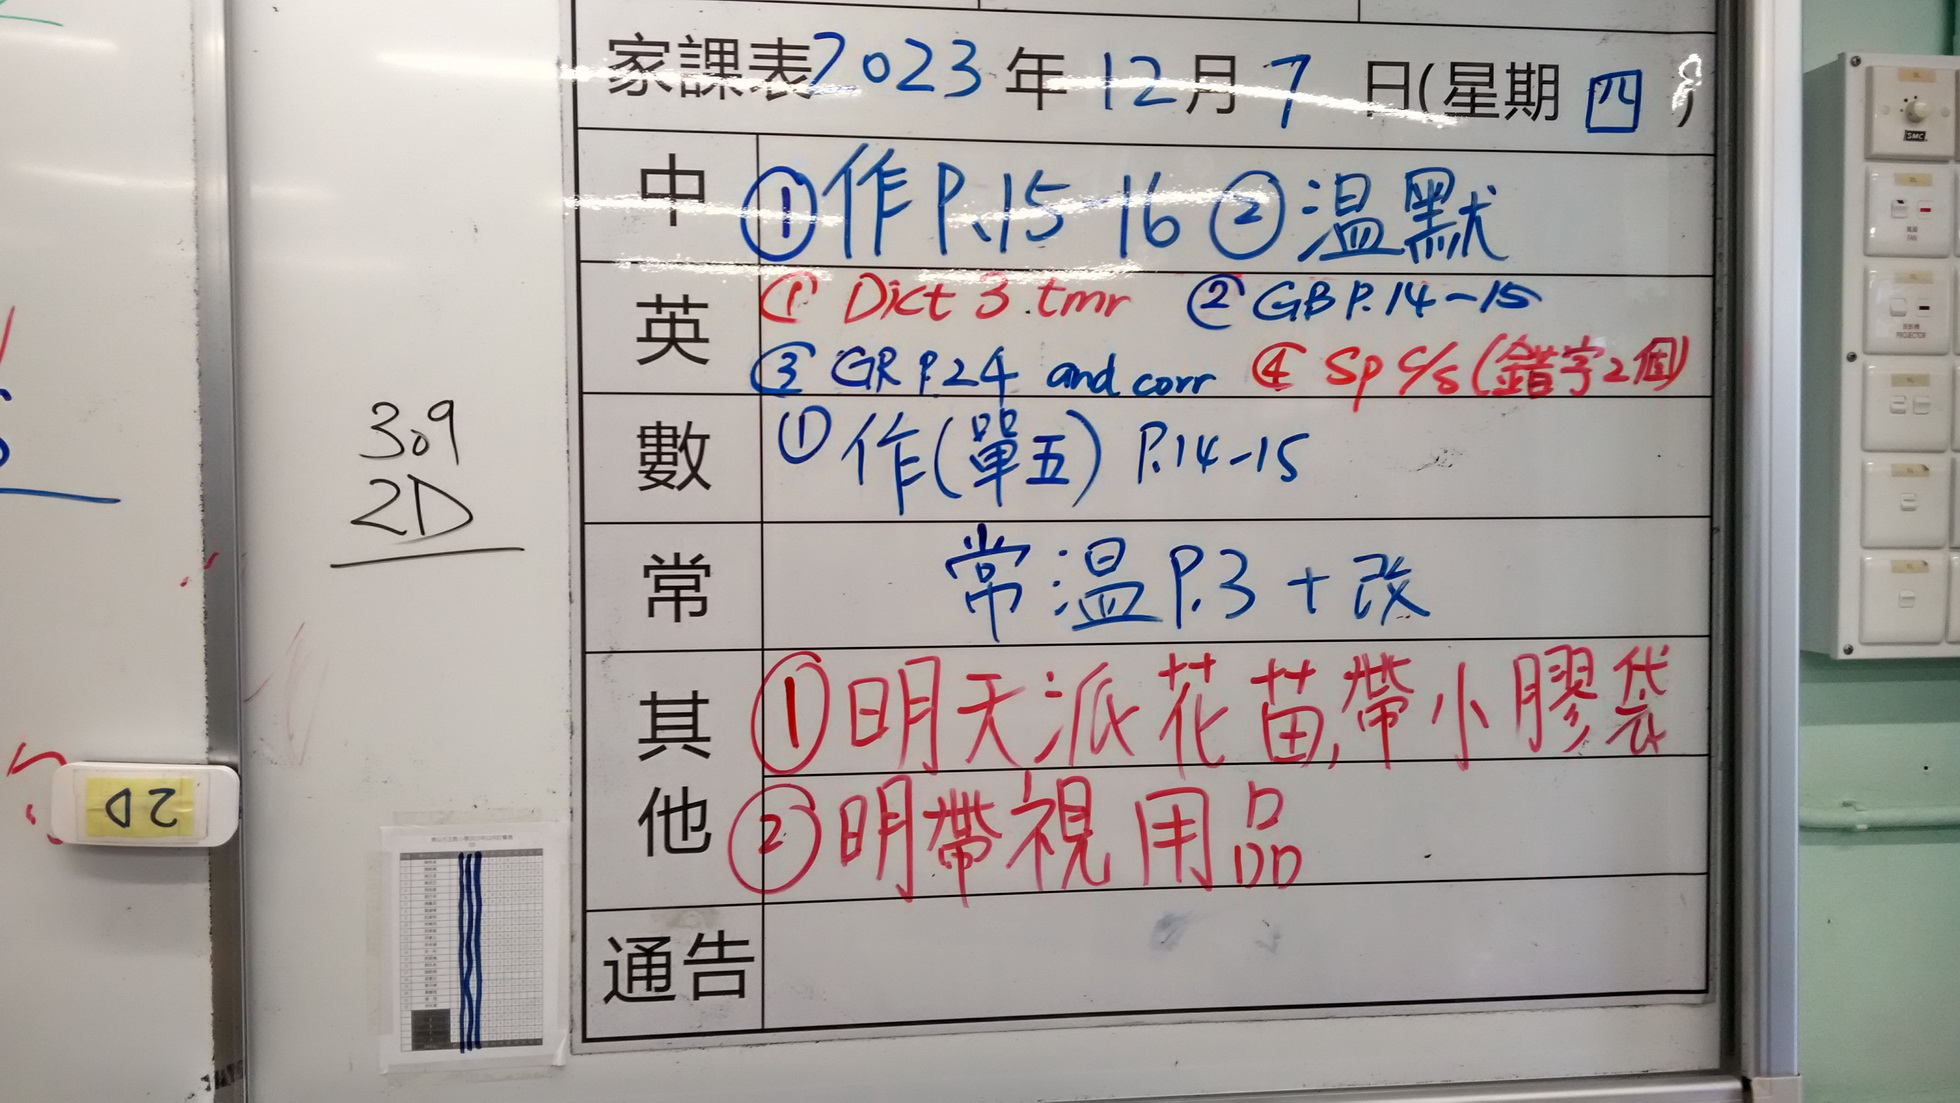 家課表2023年12月7日(星期四)
中 ①作P.15-16 ②溫默
英 ① Dict 3.tmr ② GB P.14-15
③ GR P.24 and corr ④ Sp c/s (錯字2個)
數 ① 作(單五) P.14-15
常 常溫P.3 + 改
其他 ①明天派花苗,帶小膠袋
②明帶視用品
通告
309
2D
2D
SMC
FAN
PROJECTOR